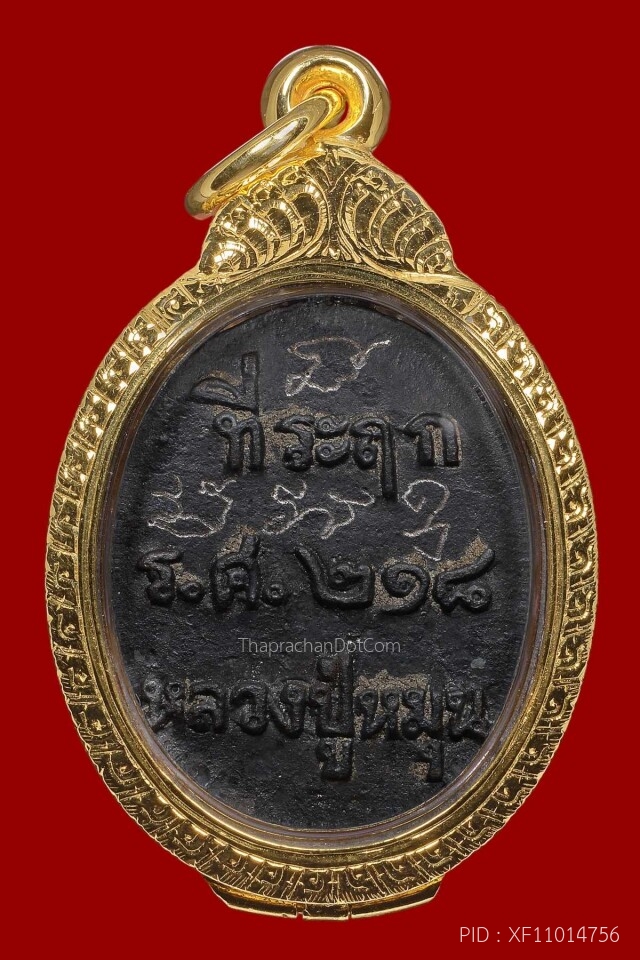 ที่ระฤก
ร.ศ. ๒๑๘
ThaprachanDotCom
หลวงปู่หมุน
PID : XF11014756